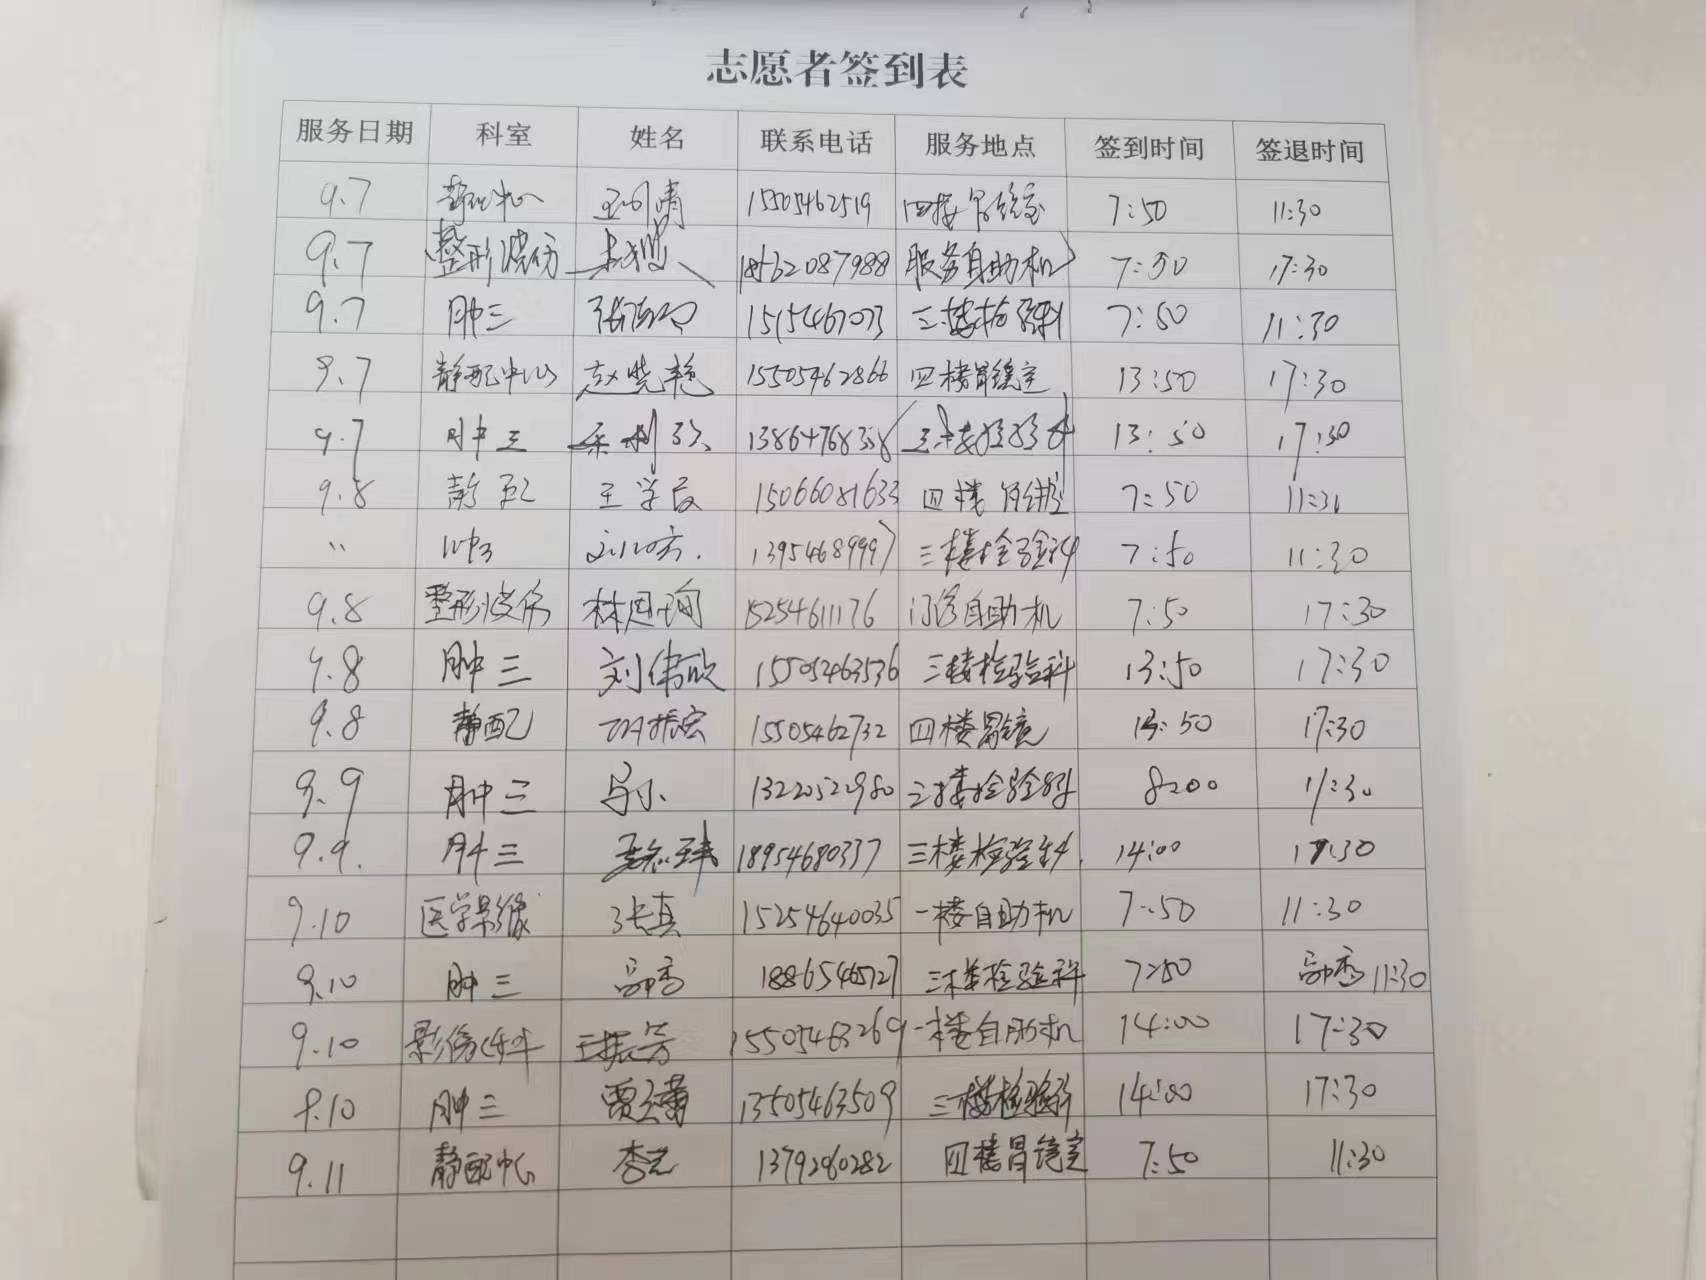 志愿者签到表
服务日期 科室 姓名 联系电话 服务地点 签到时间 签退时间
9.7 静配中心 15505462519 四楼胃镜室 7:50 11:30
9.7 整形烧伤 18562087988 服务自助机 7:50 17:30
9.7 肿三 三楼检验科 7:50 11:30
9.7 静配中心 赵晓艳 15505462866 四楼胃镜室 13:50 17:30
9.7 肿三 三楼检验科 13:50 17:30
9.8 静配 王学良 15066081633 四楼胃镜室 7:50 11:30
" 肿3 13954689997 三楼检验科 7:50 11:30
9.8 整形烧伤 林思珣 15254611176 门诊自助机 7:50 17:30
9.8 肿三 刘伟欣 15505463536 三楼检验科 13:50 17:30
9.8 静配 15505462732 四楼胃镜 13:50 17:30
9.9 肿三 马小 13220522980 三楼检验科 8:00 11:30
9.9. 肿三 18954680337 三楼检验科. 14:00 17:30
9.10 医学影像 张真 15254640035 一楼自助机 7:50 11:30
9.10 肿三 三楼检验科 7:50 11:30
9.10 影像 王振芳 15505463269 一楼自助机 14:00 17:30
9.10 肿三 13505463509 三楼检验科 14:00 17:30
9.11 静配中心 1379260282 四楼胃镜室 7:50 11:30